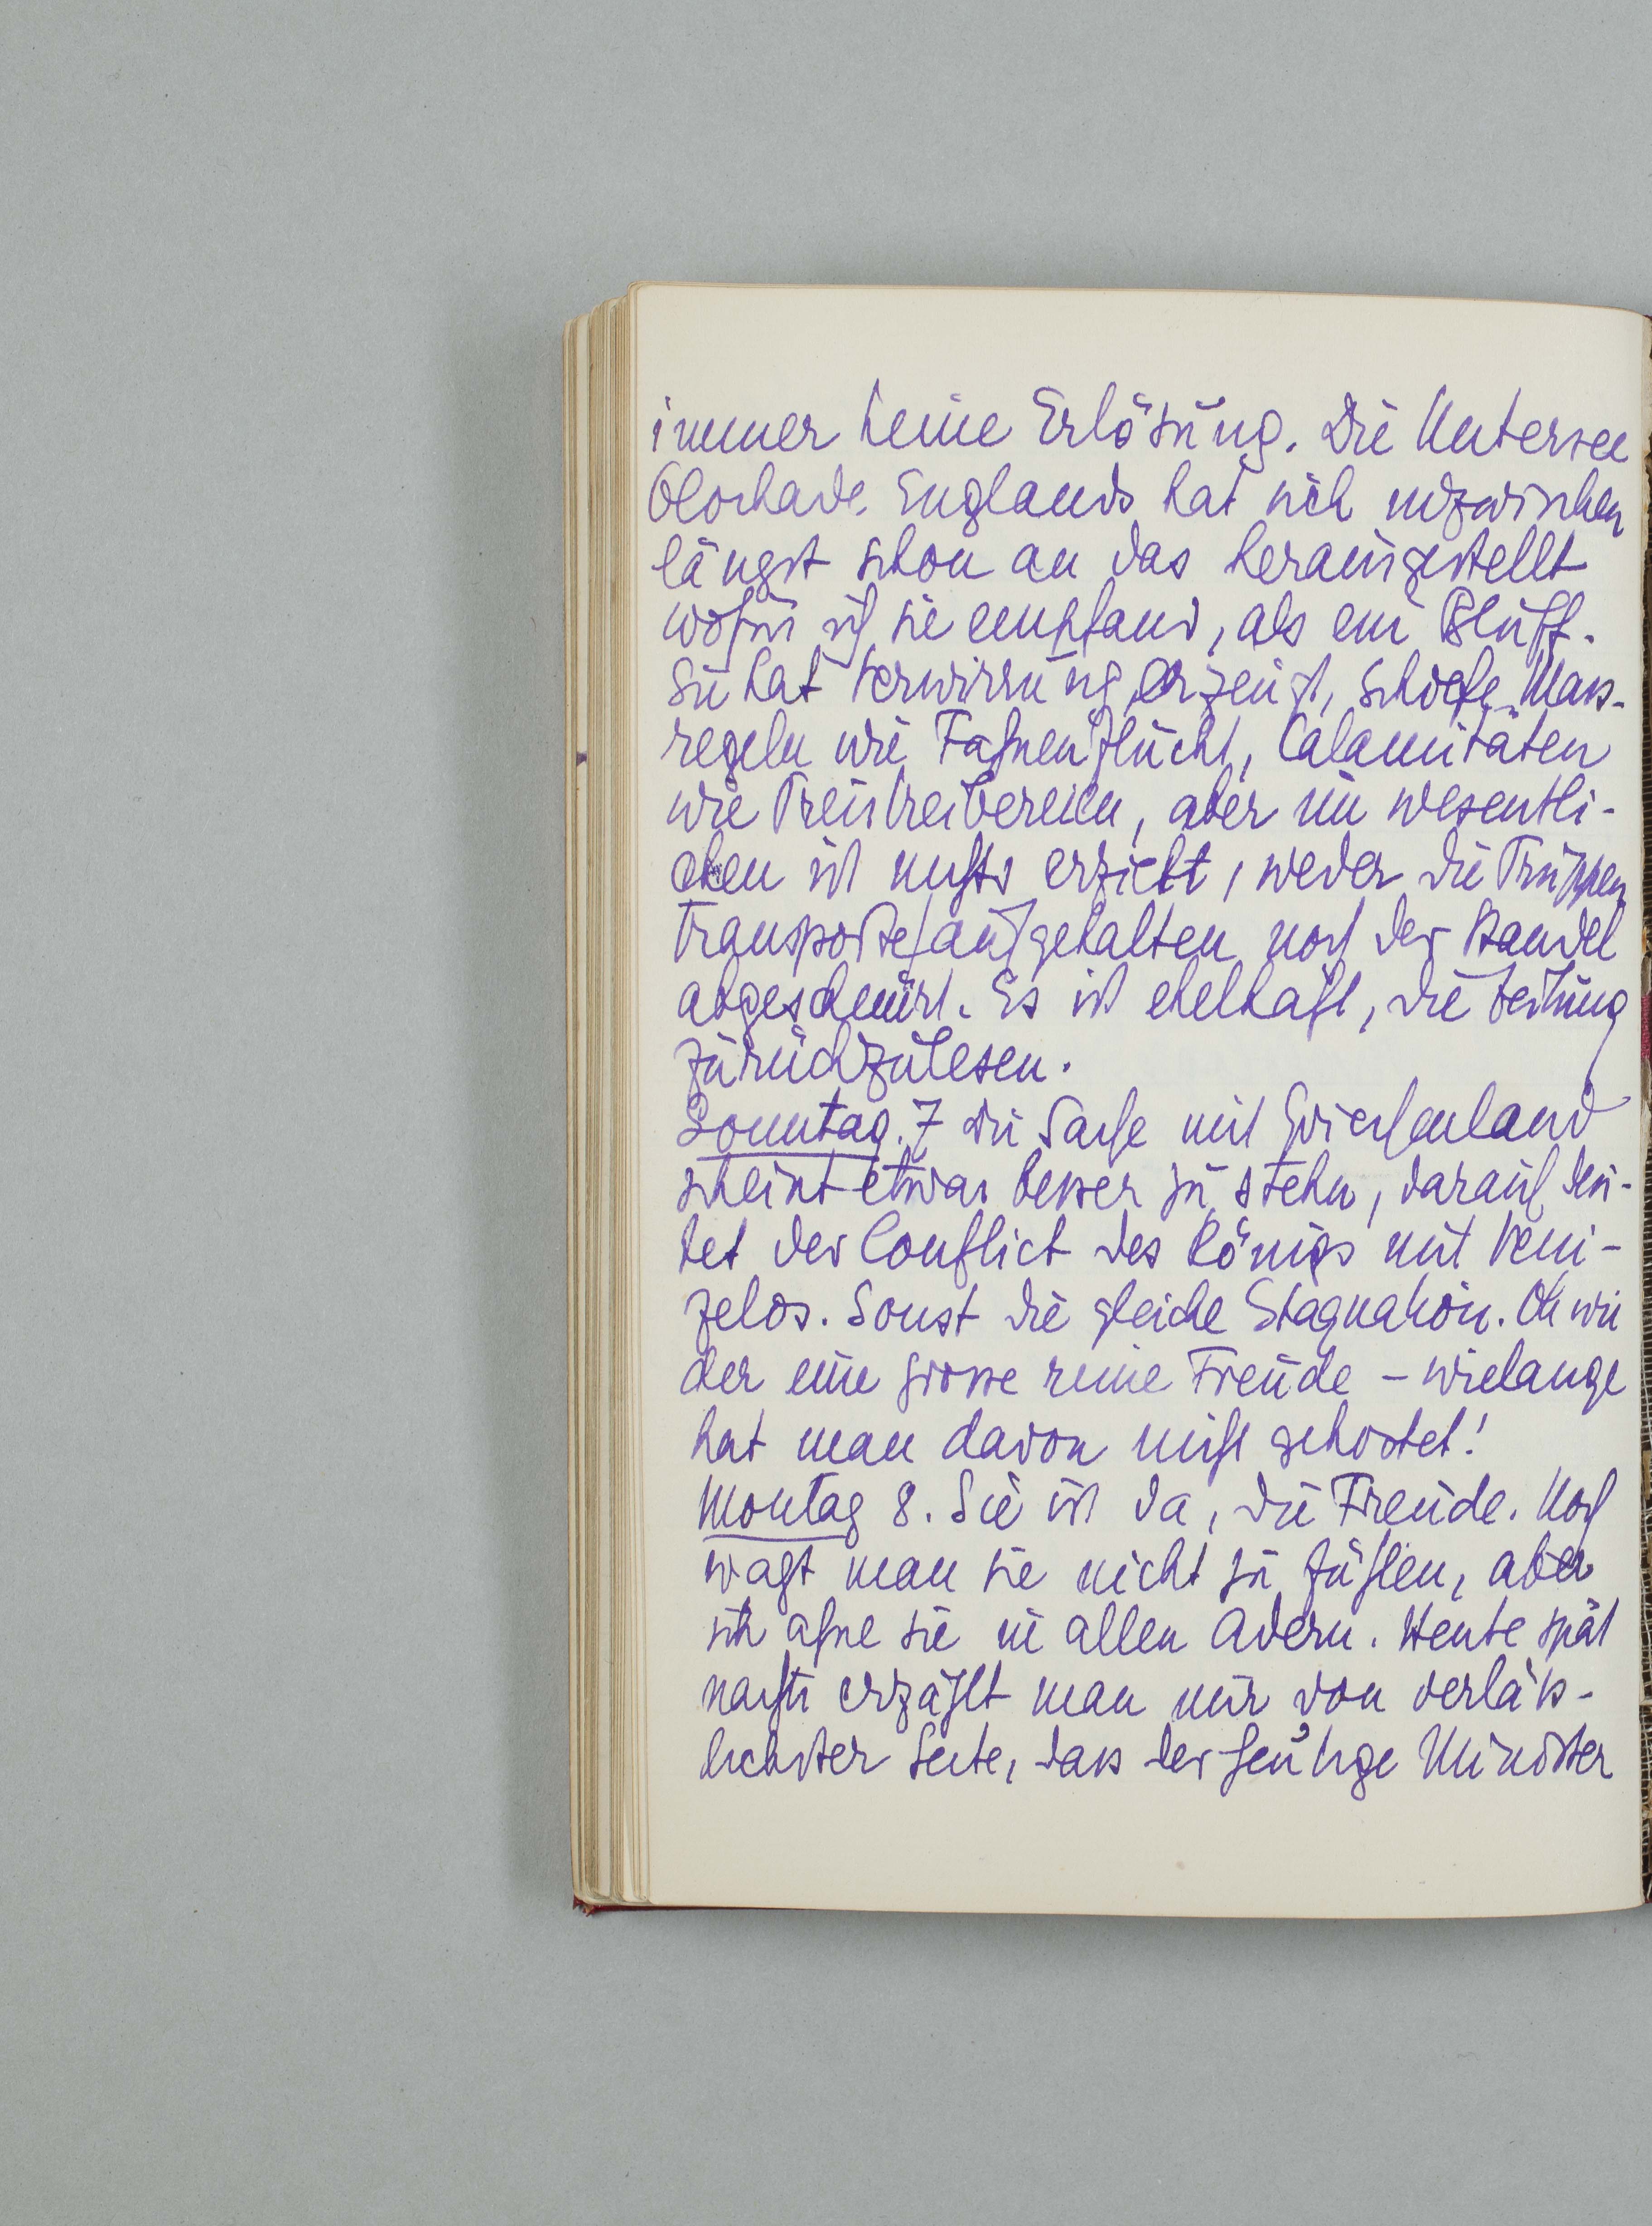 immer keine Erlösung. Die Untersee
blockade Englands hat sich inzwischen
längst schon an das herausgestellt
wofür ich sie empfand, als ein Bluff.
Sie hat Verwirrung erzeugt, schiefe Mass-
regeln wie Fahnenflucht, Calamitäten
wie Preistreibereien, aber im wesentli-
chen ist nichts erzielt, weder die Truppen
transporte aufgehalten noch der Handel
abgeschnürt. Es ist ekelhaft, die Zeitung
zurückzulesen.
Sonntag. 7 Die Sache mit Griechenland
scheint etwas besser zu stehn, darauf deu-
tet der Conflict des Königs mit Veni-
zelos. Sonst die gleiche Stagnation. Oh wie
der eine grosse reine Freude – wielange
hat man davon nicht gekostet!
Montag 8. Sie ist da, die Freude. Noch
wagt man sie nicht zu fühlen, aber
ich ahne sie in allen Adern. Heute spät
nachts erzählt man mir von verläss-
lichster Seite, dass der heutige Minister